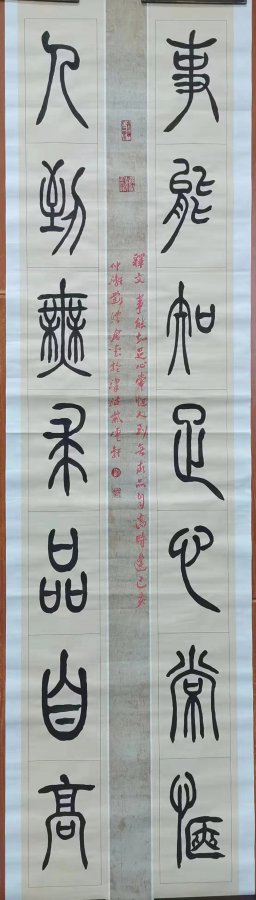 事能知足心常惬
人到无求品自高
释文 事能知足心常惬人到无求品自高 时逢己亥